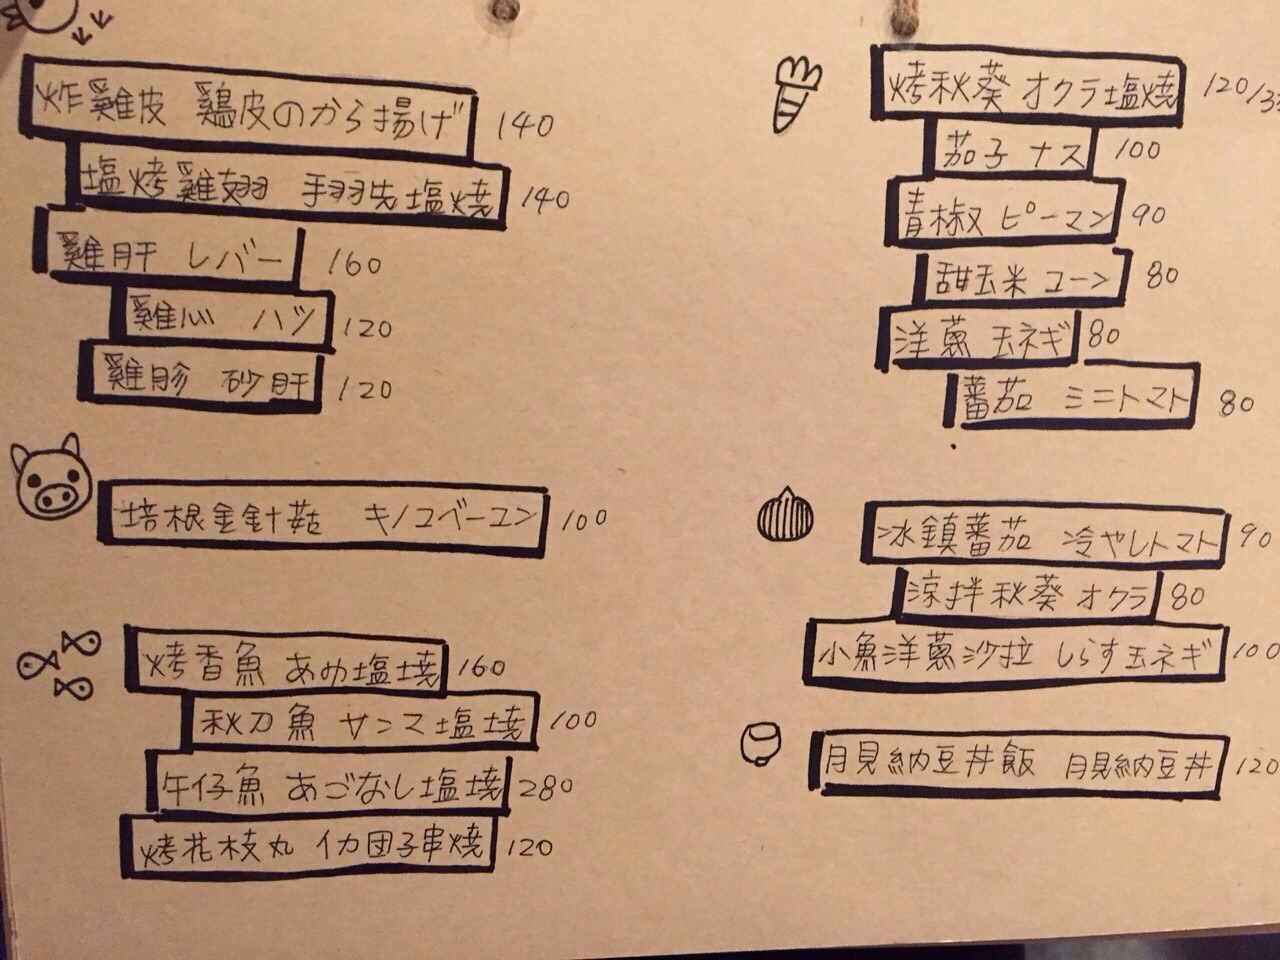 炸雞皮 鶏皮のから揚げ 140
塩烤雞翅 手羽先塩焼 140
雞肝 レバー 160
雞心 ハツ 120
雞胗 砂肝 120
培根金針菇 キノコベーコン 100
烤香魚 あゆ塩焼 160
秋刀魚 サンマ塩焼 100
午仔魚 あごなし塩焼 280
烤花枝丸 イカ団子串焼 120
烤秋葵 オクラ塩焼 120/
茄子 ナス 100
青椒 ピーマン 90
甜玉米 コーン 80
洋蔥 玉ネギ 80
蕃茄 ミニトマト 80
冰鎮蕃茄 冷やしトマト 90
涼拌秋葵 オクラ 80
小魚洋蔥沙拉 しらす玉ネギ 100
月見納豆丼飯 月見納豆丼 120